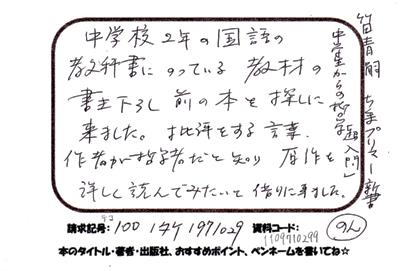 竹田青嗣 ちくまプリマー新書
中学生からの哲学「超」入門
中学校2年の国語の
教科書にのっている 教材の
書き下ろし前の本を探しに
来ました。批評をする言葉
作者が哲学者だと知り 原作を
詳しく読んでみたいと借りに来ました。
請求記号: 100 174 1971029 資料コード: 1109710299
のん
本のタイトル・著者・出版社、おすすめポイント、ペンネームを書いてね☆